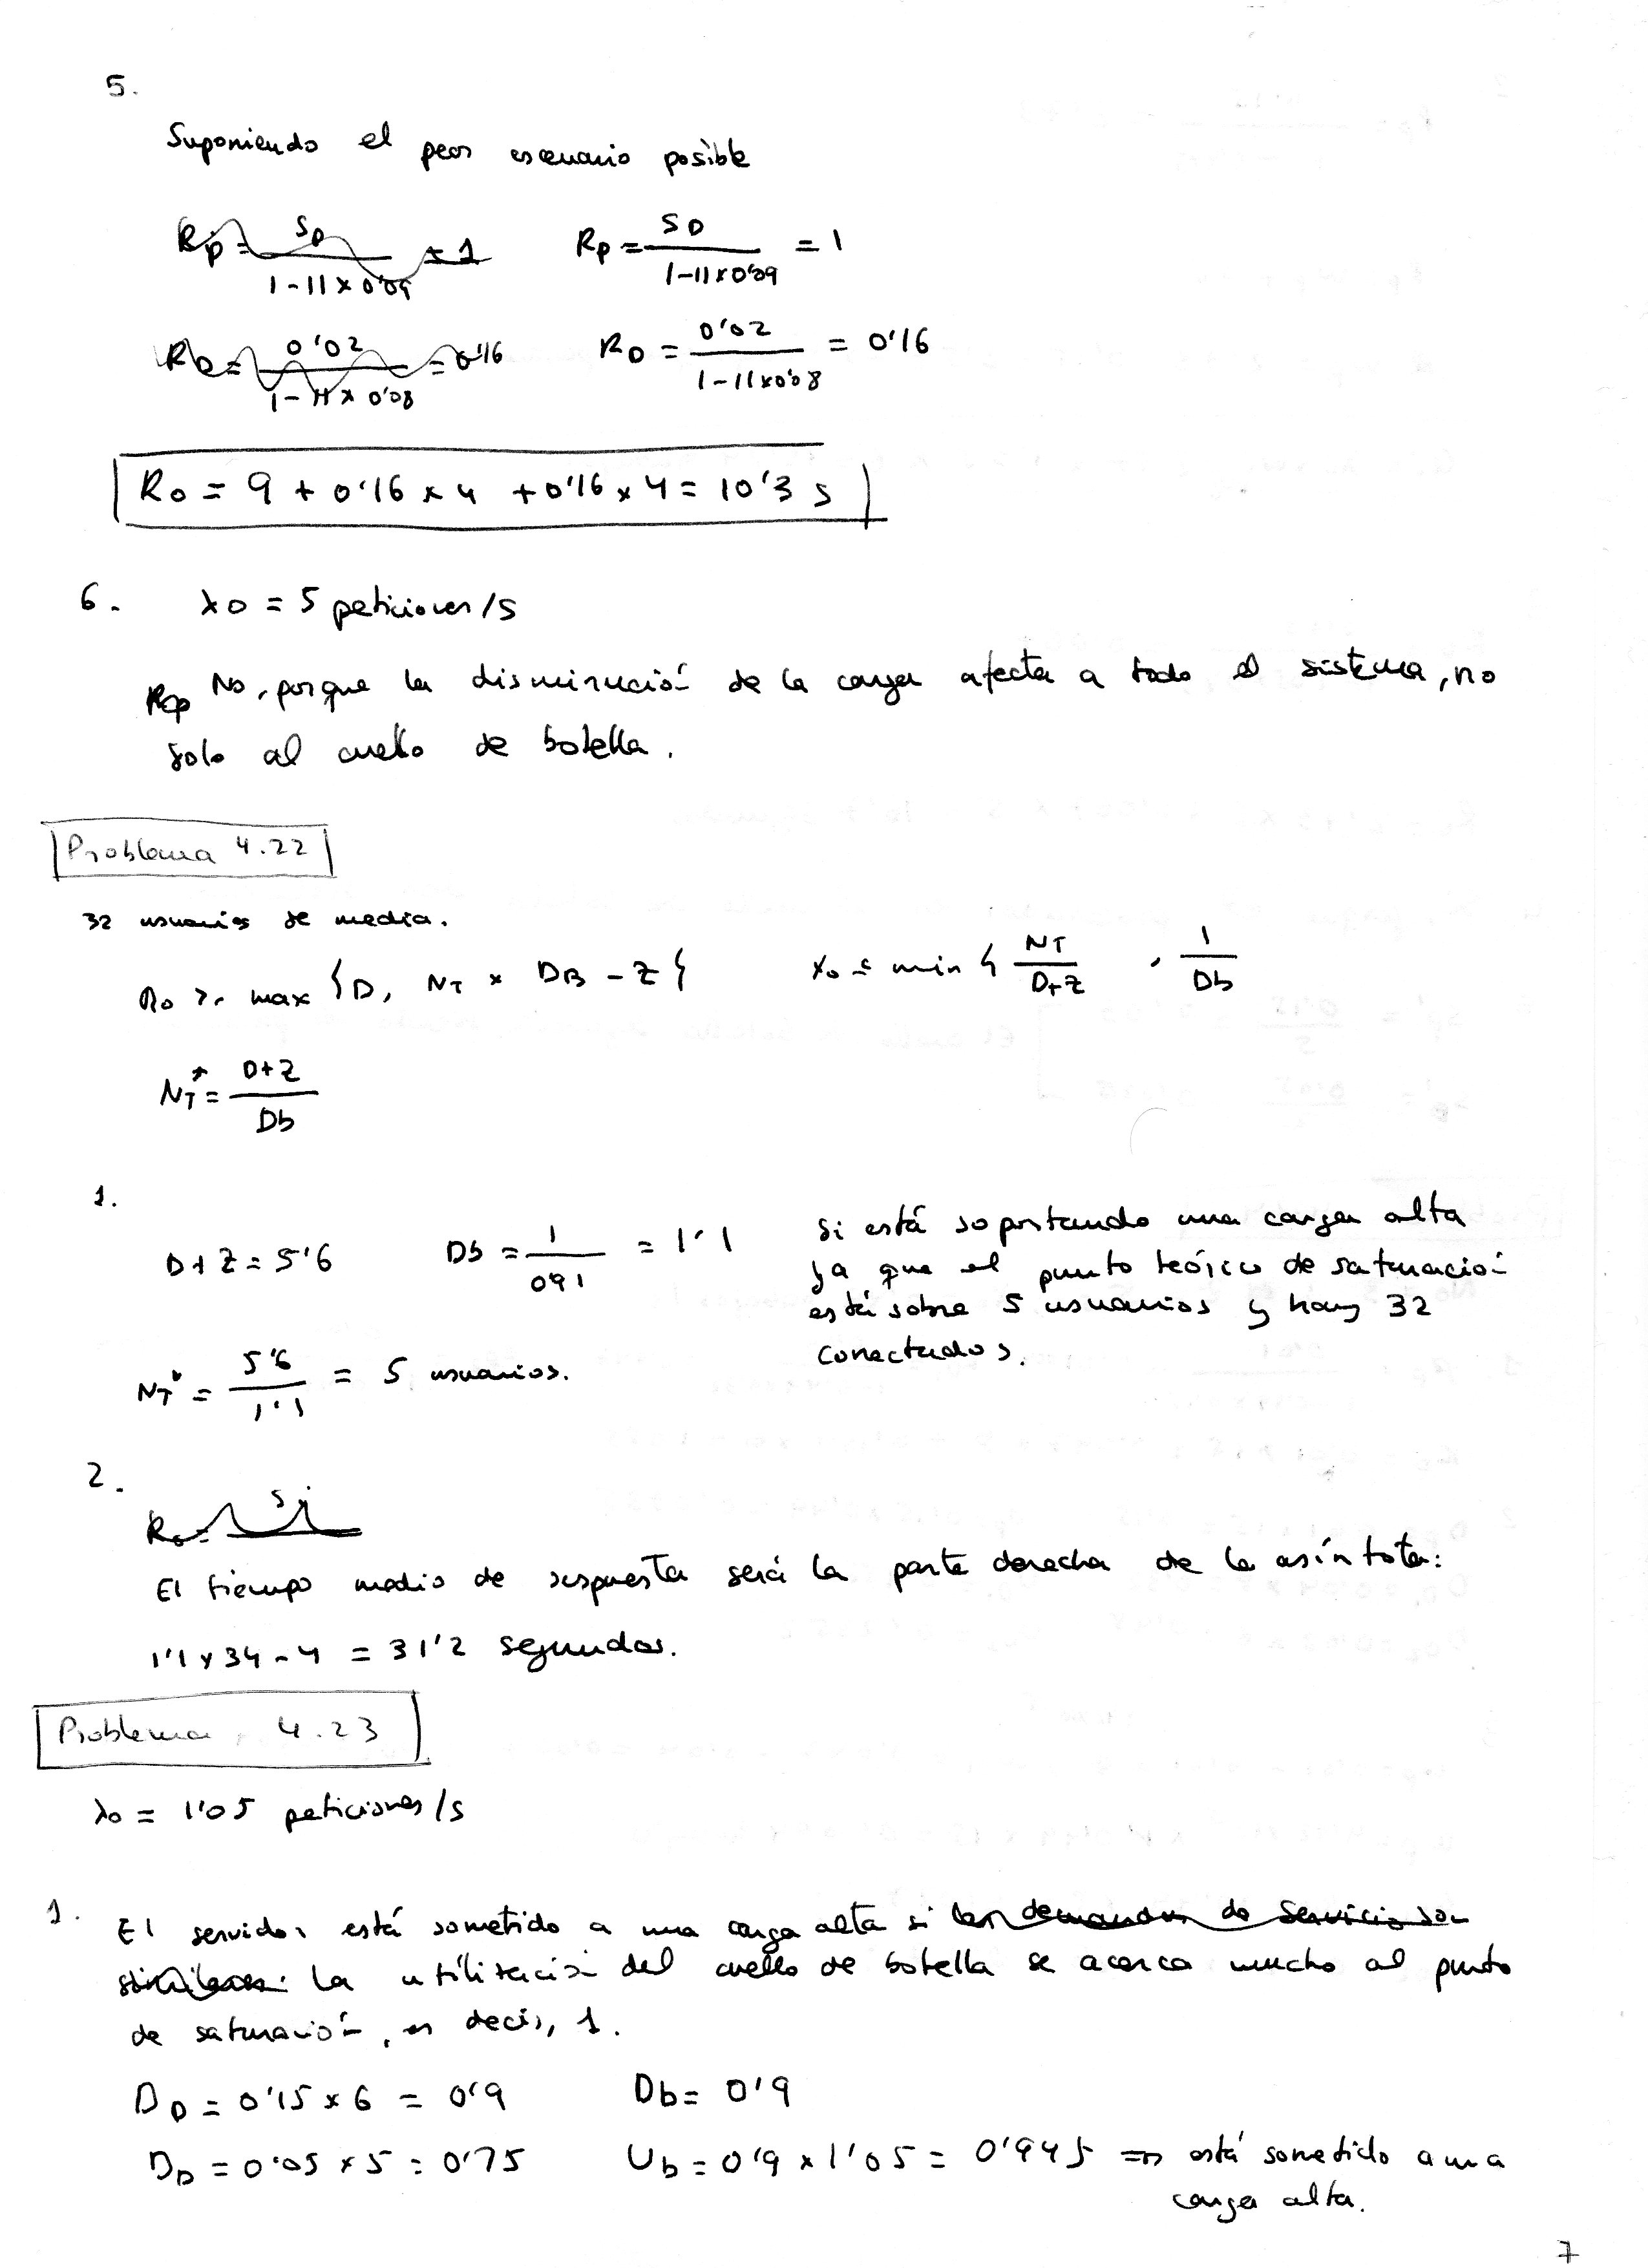 5.
Suponiendo el peor escenario posible
Rp = SD / 1-11x0'09 = 1 Rp = SD / 1-11x0'09 = 1
RD = 0'02 / 1-11x0'08 = 0'16 RD = 0'02 / 1-11x0'08 = 0'16
Ro = 9 + 0'16 x 4 + 0'16 x 4 = 10'3 s
6. λ0 = 5 peticiones/s
No, porque la disminución de la carga afecta a todo el sistema, no
solo al cuello de botella.
Problema 4.22
32 usuarios de media.
Ro ≥ max {D, NT x DB - Z} Xo ≤ min { NT / D+Z , 1 / Db
NT* = D+Z / Db
1.
D+Z = 5'6 Db = 1 / 091 = 1'1
Si está soportando una carga alta
ya que el punto teórico de saturación
está sobre 5 usuarios y hay 32
conectados.
NT* = 5'6 / 1'1 = 5 usuarios.
2.
El tiempo medio de respuesta será la parte derecha de la asíntota:
1'1 x 34 - 4 = 31'2 segundos.
Problema 4.23
λo = 1'05 peticiones/s
1. El servidor está sometido a una carga alta si las demandas de servicio son
similares: la utilización del cuello de botella se acerca mucho al punto
de saturación, es decir, 1.
DD = 0'15 x 6 = 0'9 Db = 0'9
DD = 0'05 x 5 = 0'75 Ub = 0'9 x 1'05 = 0'945 => está sometido a una
carga alta.
7